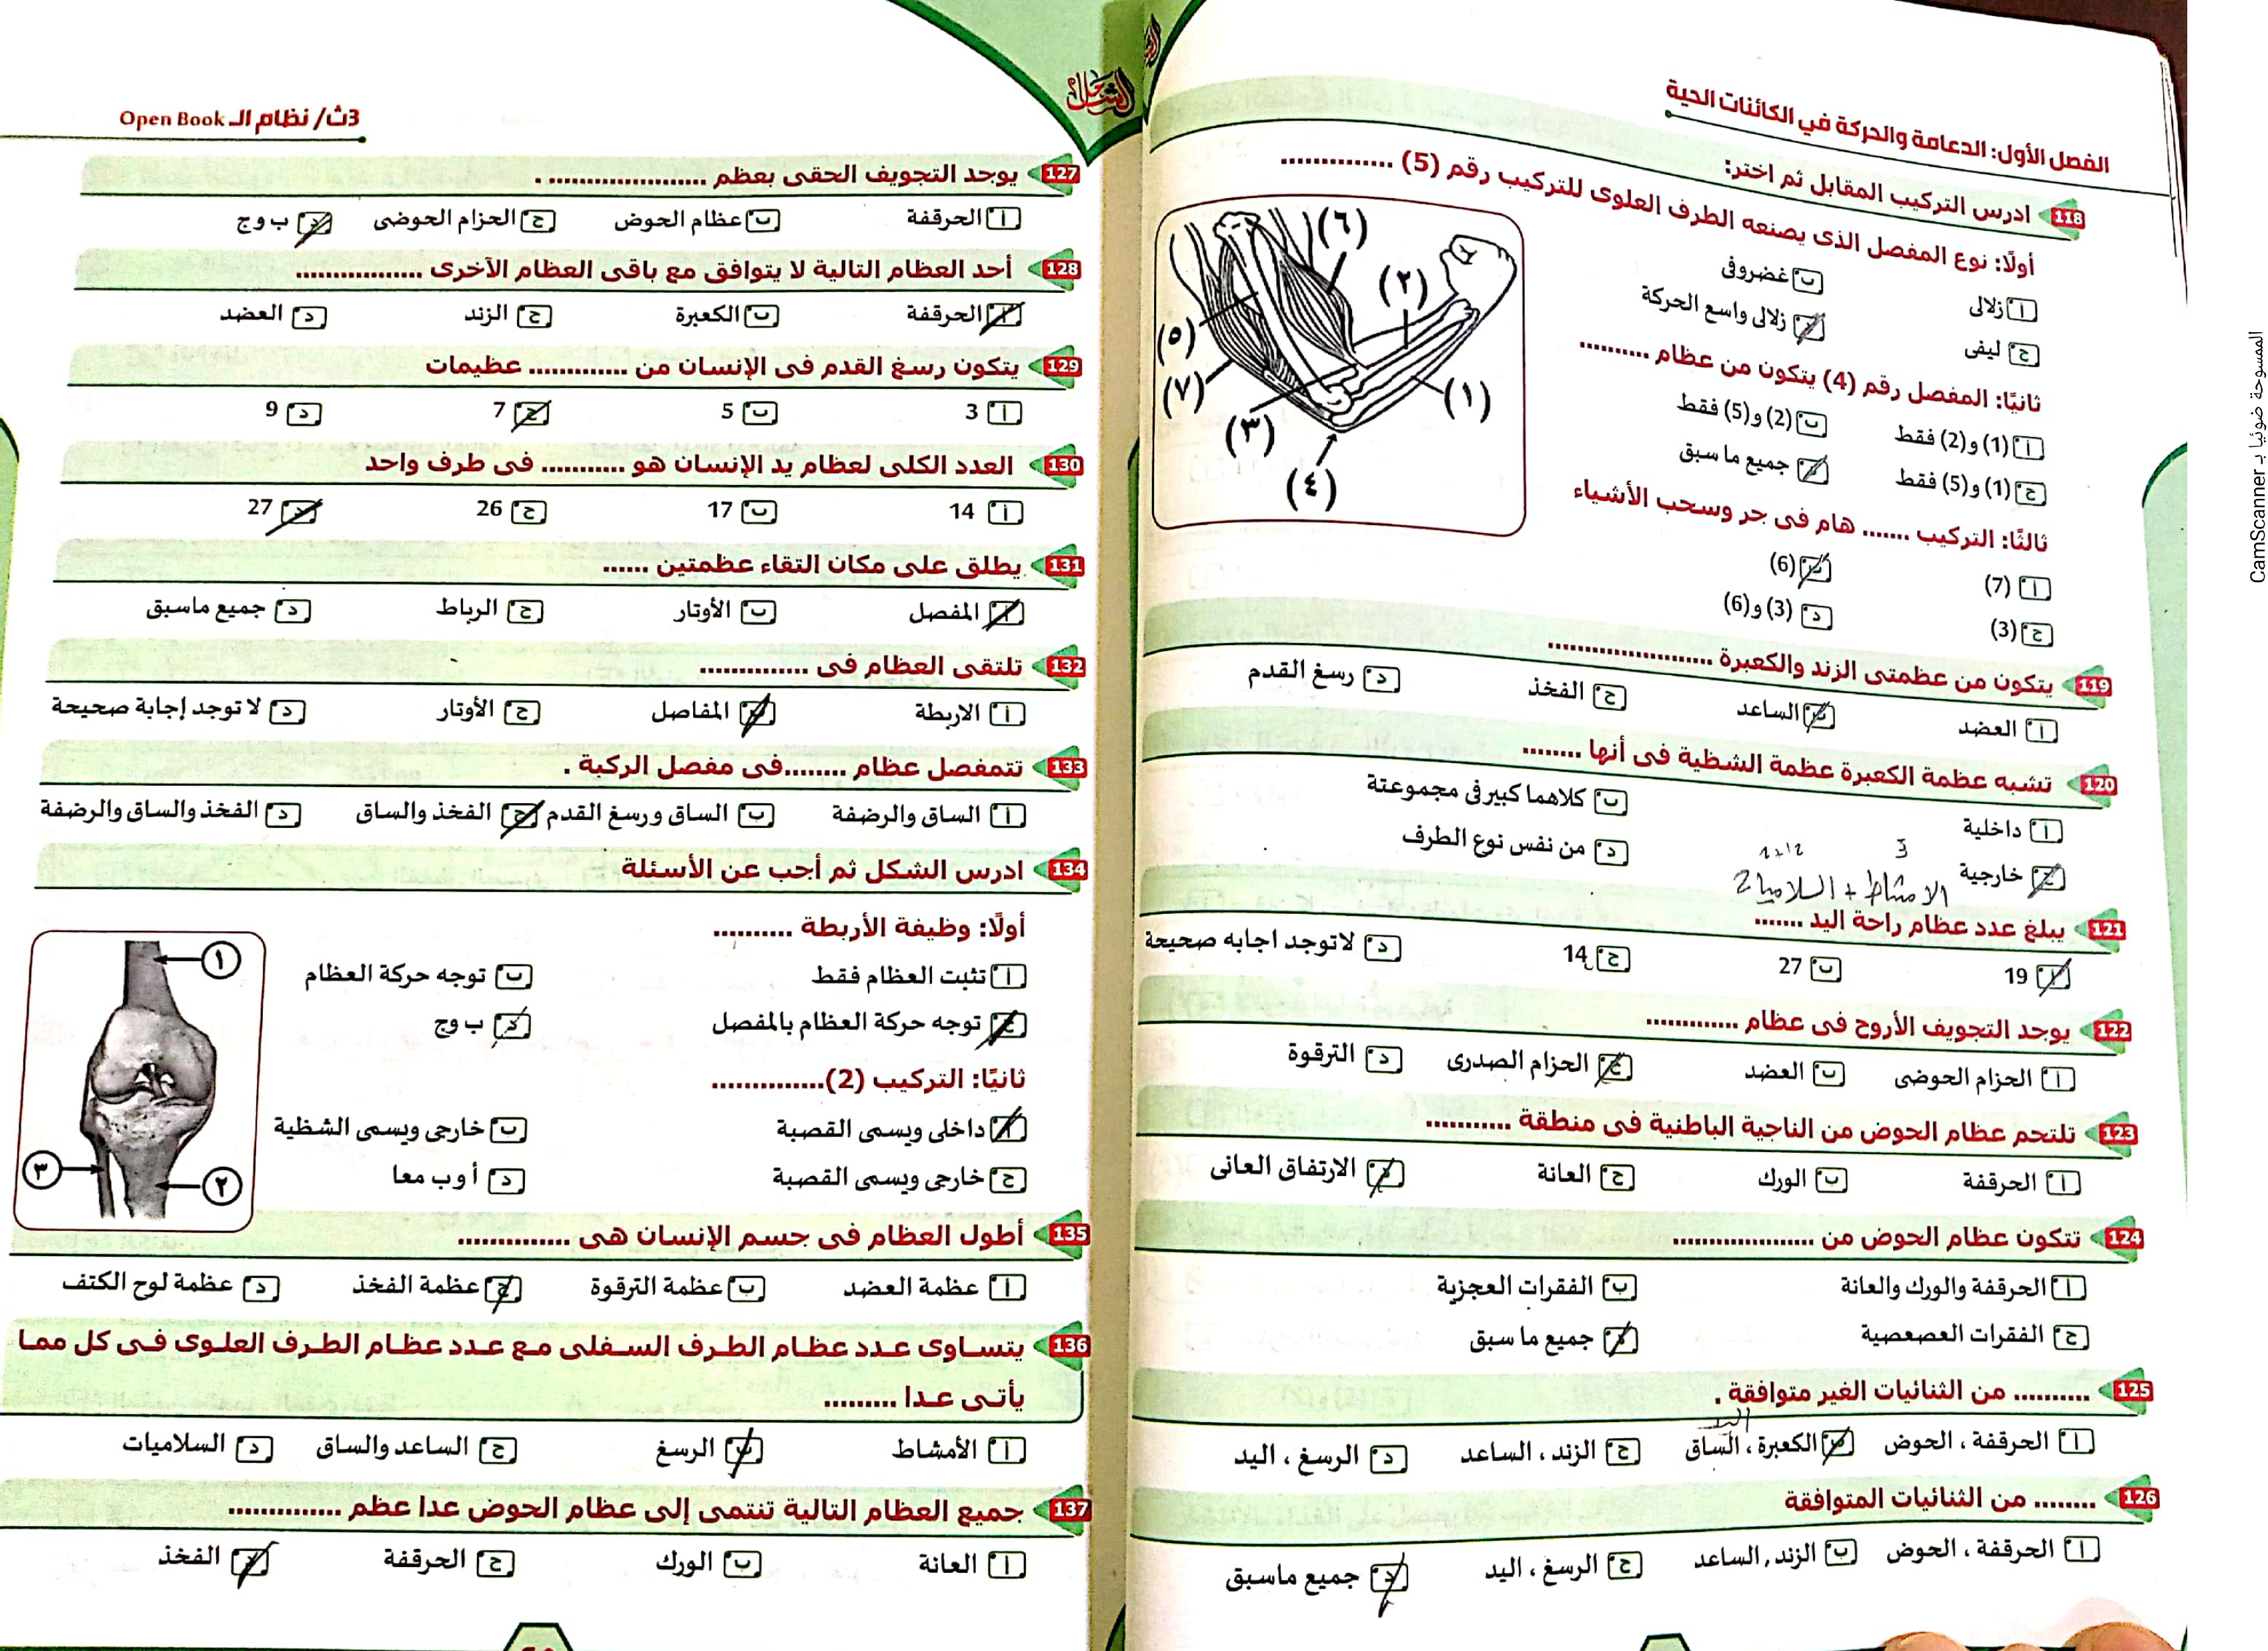 الفصل الأول: الدعامة والحركة في الكائنات الحية
118 ادرس التركيب المقابل ثم اختر:
أولًا: نوع المفصل الذى يصنعه الطرف العلوى للتركيب رقم (5) ..............
أ زلالى
ب غضروفى
ج ليفى
د زلالى واسع الحركة
ثانيًا: المفصل رقم (4) يتكون من عظام ..........
أ (1) و(2) فقط
ب (2) و(5) فقط
ج (1) و(5) فقط
د جميع ما سبق
ثالثًا: التركيب ....... هام فى جر وسحب الأشياء
أ (7)
ب (6)
ج (3)
د (3) و(6)
(٦)
(٢)
(٥)
(٧)
(١)
(٣)
(٤)
119 يتكون من عظمتى الزند والكعبرة ......................
أ العضد ب الساعد ج الفخذ د رسغ القدم
120 تشبه عظمة الكعبرة عظمة الشظية فى أنها ........
أ داخلية ب كلاهما كبير فى مجموعتة
ج خارجية د من نفس نوع الطرف
الامشاط + السلاميات
121 يبلغ عدد عظام راحة اليد .......
أ 19 ب 27 ج 14 د لاتوجد اجابه صحيحة
122 يوجد التجويف الأروح فى عظام ............
أ الحزام الحوضى ب العضد ج الحزام الصدرى د الترقوة
123 تلتحم عظام الحوض من الناحية الباطنية فى منطقة ...........
أ الحرقفة ب الورك ج العانة د الارتفاق العانى
124 تتكون عظام الحوض من ..................
أ الحرقفة والورك والعانة ب الفقرات العجزية
ج الفقرات العصعصية د جميع ما سبق
125 .......... من الثنائيات الغير متوافقة .
اليد
أ الحرقفة ، الحوض ب الكعبرة ، الساق ج الزند ، الساعد د الرسغ ، اليد
126 ........ من الثنائيات المتوافقة
أ الحرقفة ، الحوض ب الزند , الساعد ج الرسغ ، اليد د جميع ماسبق
3ث/ نظام الـ Open Book
127 يوجد التجويف الحقى بعظم .................... .
أ الحرقفة ب عظام الحوض ج الحزام الحوضى د ب وج
128 أحد العظام التالية لا يتوافق مع باقى العظام الآخرى ................
أ الحرقفة ب الكعبرة ج الزند د العضد
129 يتكون رسغ القدم فى الإنسان من ............. عظيمات
أ 3 ب 5 ج 7 د 9
130 العدد الكلى لعظام يد الإنسان هو ........... فى طرف واحد
أ 14 ب 17 ج 26 د 27
131 يطلق على مكان التقاء عظمتين ......
أ المفصل ب الأوتار ج الرباط د جميع ماسبق
132 تلتقى العظام فى ..............
أ الاربطة ب المفاصل ج الأوتار د لا توجد إجابة صحيحة
133 تتمفصل عظام ........فى مفصل الركبة .
أ الساق والرضفة ب الساق ورسغ القدم ج الفخذ والساق د الفخذ والساق والرضفة
134 ادرس الشكل ثم أجب عن الأسئلة
أولًا: وظيفة الأربطة ..........
أ تثبت العظام فقط ب توجه حركة العظام
ج توجه حركة العظام بالمفصل د ب وج
ثانيًا: التركيب (2)..............
أ داخلى ويسمى القصبة ب خارجى ويسمى الشظية
ج خارجى ويسمى القصبة د أ وب معا
١
٣
٢
135 أطول العظام فى جسم الإنسان هى ..............
أ عظمة العضد ب عظمة الترقوة ج عظمة الفخذ د عظمة لوح الكتف
136 يتساوى عدد عظام الطرف السفلى مع عدد عظام الطرف العلوى فى كل مما
يأتى عدا .........
أ الأمشاط ب الرسغ ج الساعد والساق د السلاميات
137 جميع العظام التالية تنتمى إلى عظام الحوض عدا عظم ..............
أ العانة ب الورك ج الحرقفة د الفخذ
الممسوحة ضوئيا بـ CamScanner